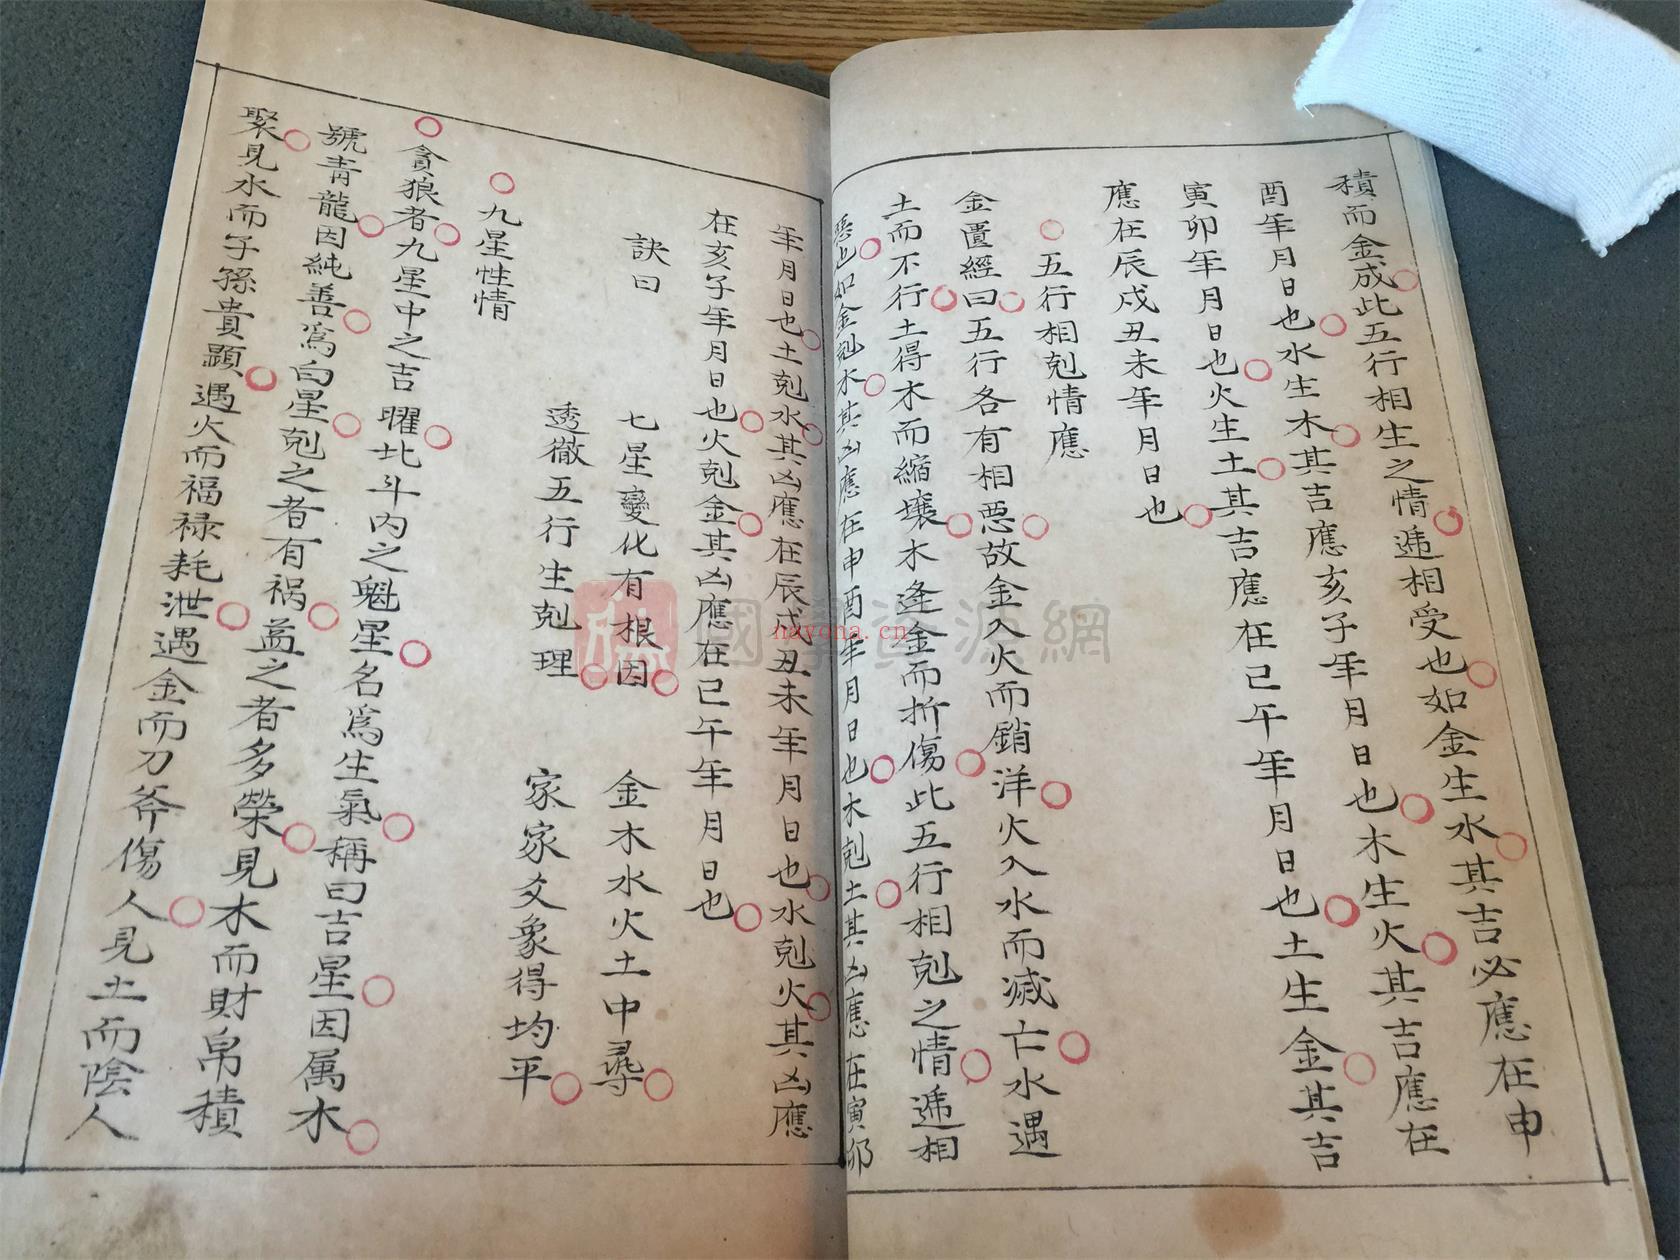 積而金成此五行相生之情遞相受也如金生水其吉必應在申
酉年月日也水生木其吉應亥子年月日也木生火其吉應在
寅卯年月日也火生土其吉應在巳午年月日也土生金其吉
應在辰戌丑未年月日也
五行相剋情應
金匱經曰五行各有相惡故金入火而銷洋火入水而滅亡水遇
土而不行土得木而縮壤木逢金而折傷此五行相剋之情遞相
惡也如金剋木其凶應在申酉年月日也木剋土其凶應在寅卯
年月日也土剋水其凶應在辰戌丑未年月日也水剋火其凶應
在亥子年月日也火剋金其凶應在巳午年月日也
訣曰
七星變化有根因 金木水火土中尋
透徹五行生剋理 家家爻象得均平
九星性情
貪狼者九星中之吉曜北斗內之魁星名爲生氣稱曰吉星因属木
號青龍因純善爲白星剋之者有祸益之者多榮見木而財帛積
聚見水而子孫貴顯遇火而福禄耗泄遇金而刀斧傷人見土而陰人
國學資源網
nayona.cn